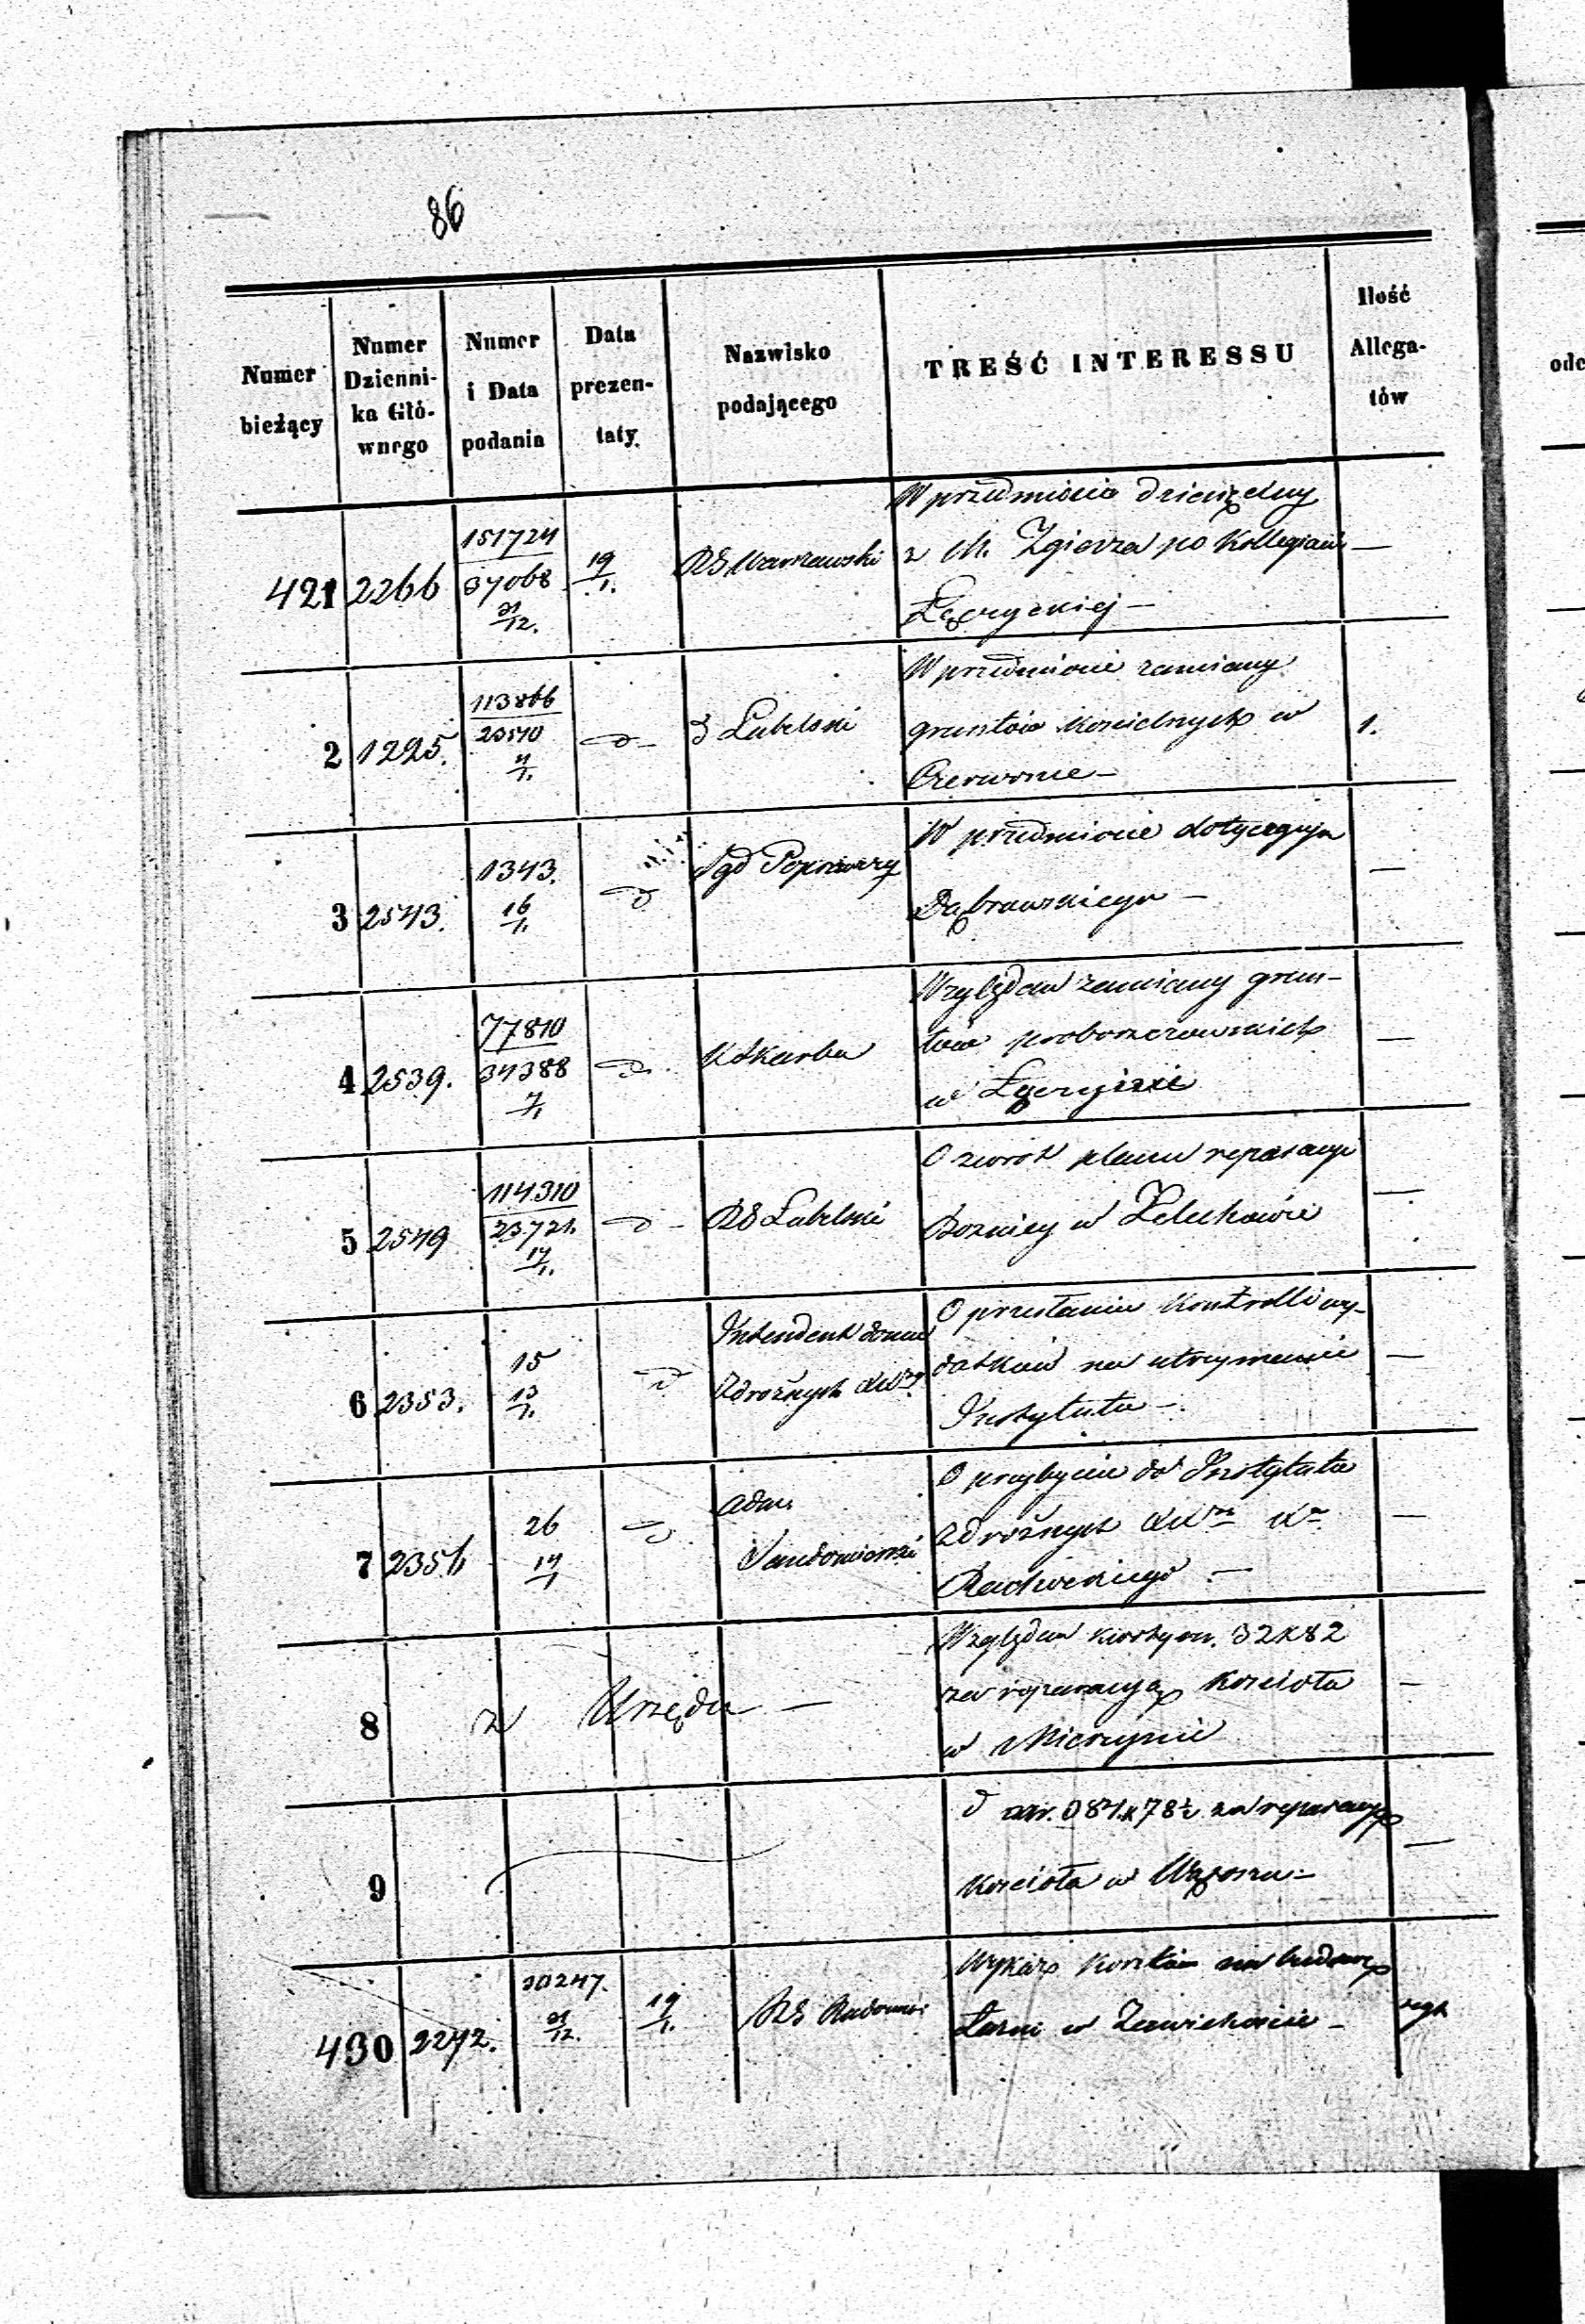 86
Numer bieżący
Numer Dzienni- ka Głó- wnego
Numer i Data podania
Data prezen- taty.
Nazwisko podającego
TREŚĆ INTERESSU
Ilość Allega- tów
odc
421 2266 151724 / 37068 31/12. 19/1. RG Warszawski
W przedmiocie dziesięciny
z M. Zgierza po Kollegiacie —
Łęczyckiej —
2 1225. 113866 / 23510 11/1. d — Lubelski
W przedmiocie zamiany
gruntów kościelnych w 1.
Czerwonce —
3 2543. 1343. 16/1. d Sąd Poprawczy
W przedmiocie —
Dąbrowskiego —
4 2539. 77810 / 34388 7/1 d K Skarbu
Względem zamiany grun-
tów proboszczowskich —
w Łęczycie
5 2549 114310 / 23721. 17/1. d — RG Lubelski
O zwrot planu reparacyi —
Bożnicy w Żelechowie
6 2353. 15 13/1. d Intendent domu Zdrożnych
O przesłaniu Kontrolli wy-
datków na utrzymanie —
Instytutu —
7 2356 26 17/1 d Adm. Sandomierski
O przybyciu do Instytutu
Zdrożnych —
8 z Urzędu —
Względem 32 K 82
za reparacyą Kościoła —
w Mierzynie
9
d 78½ za reparacyą
Kościoła w —
430 2272. 30247. 31/12. 19/1. RG Radomski
Wykaz Kosztów na budowę
Łazni w Zawichoście —